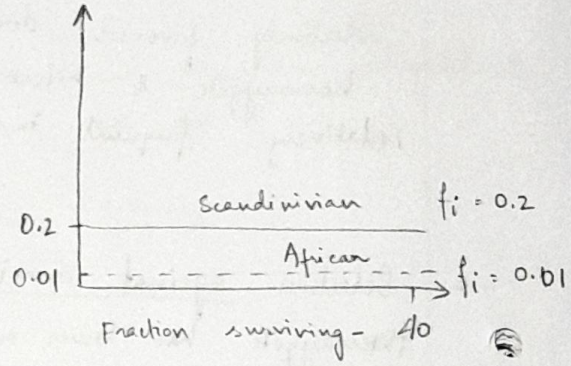 Scandinivian fi = 0.2
0.2
African
0.01 fi = 0.01
Fraction surviving- 40